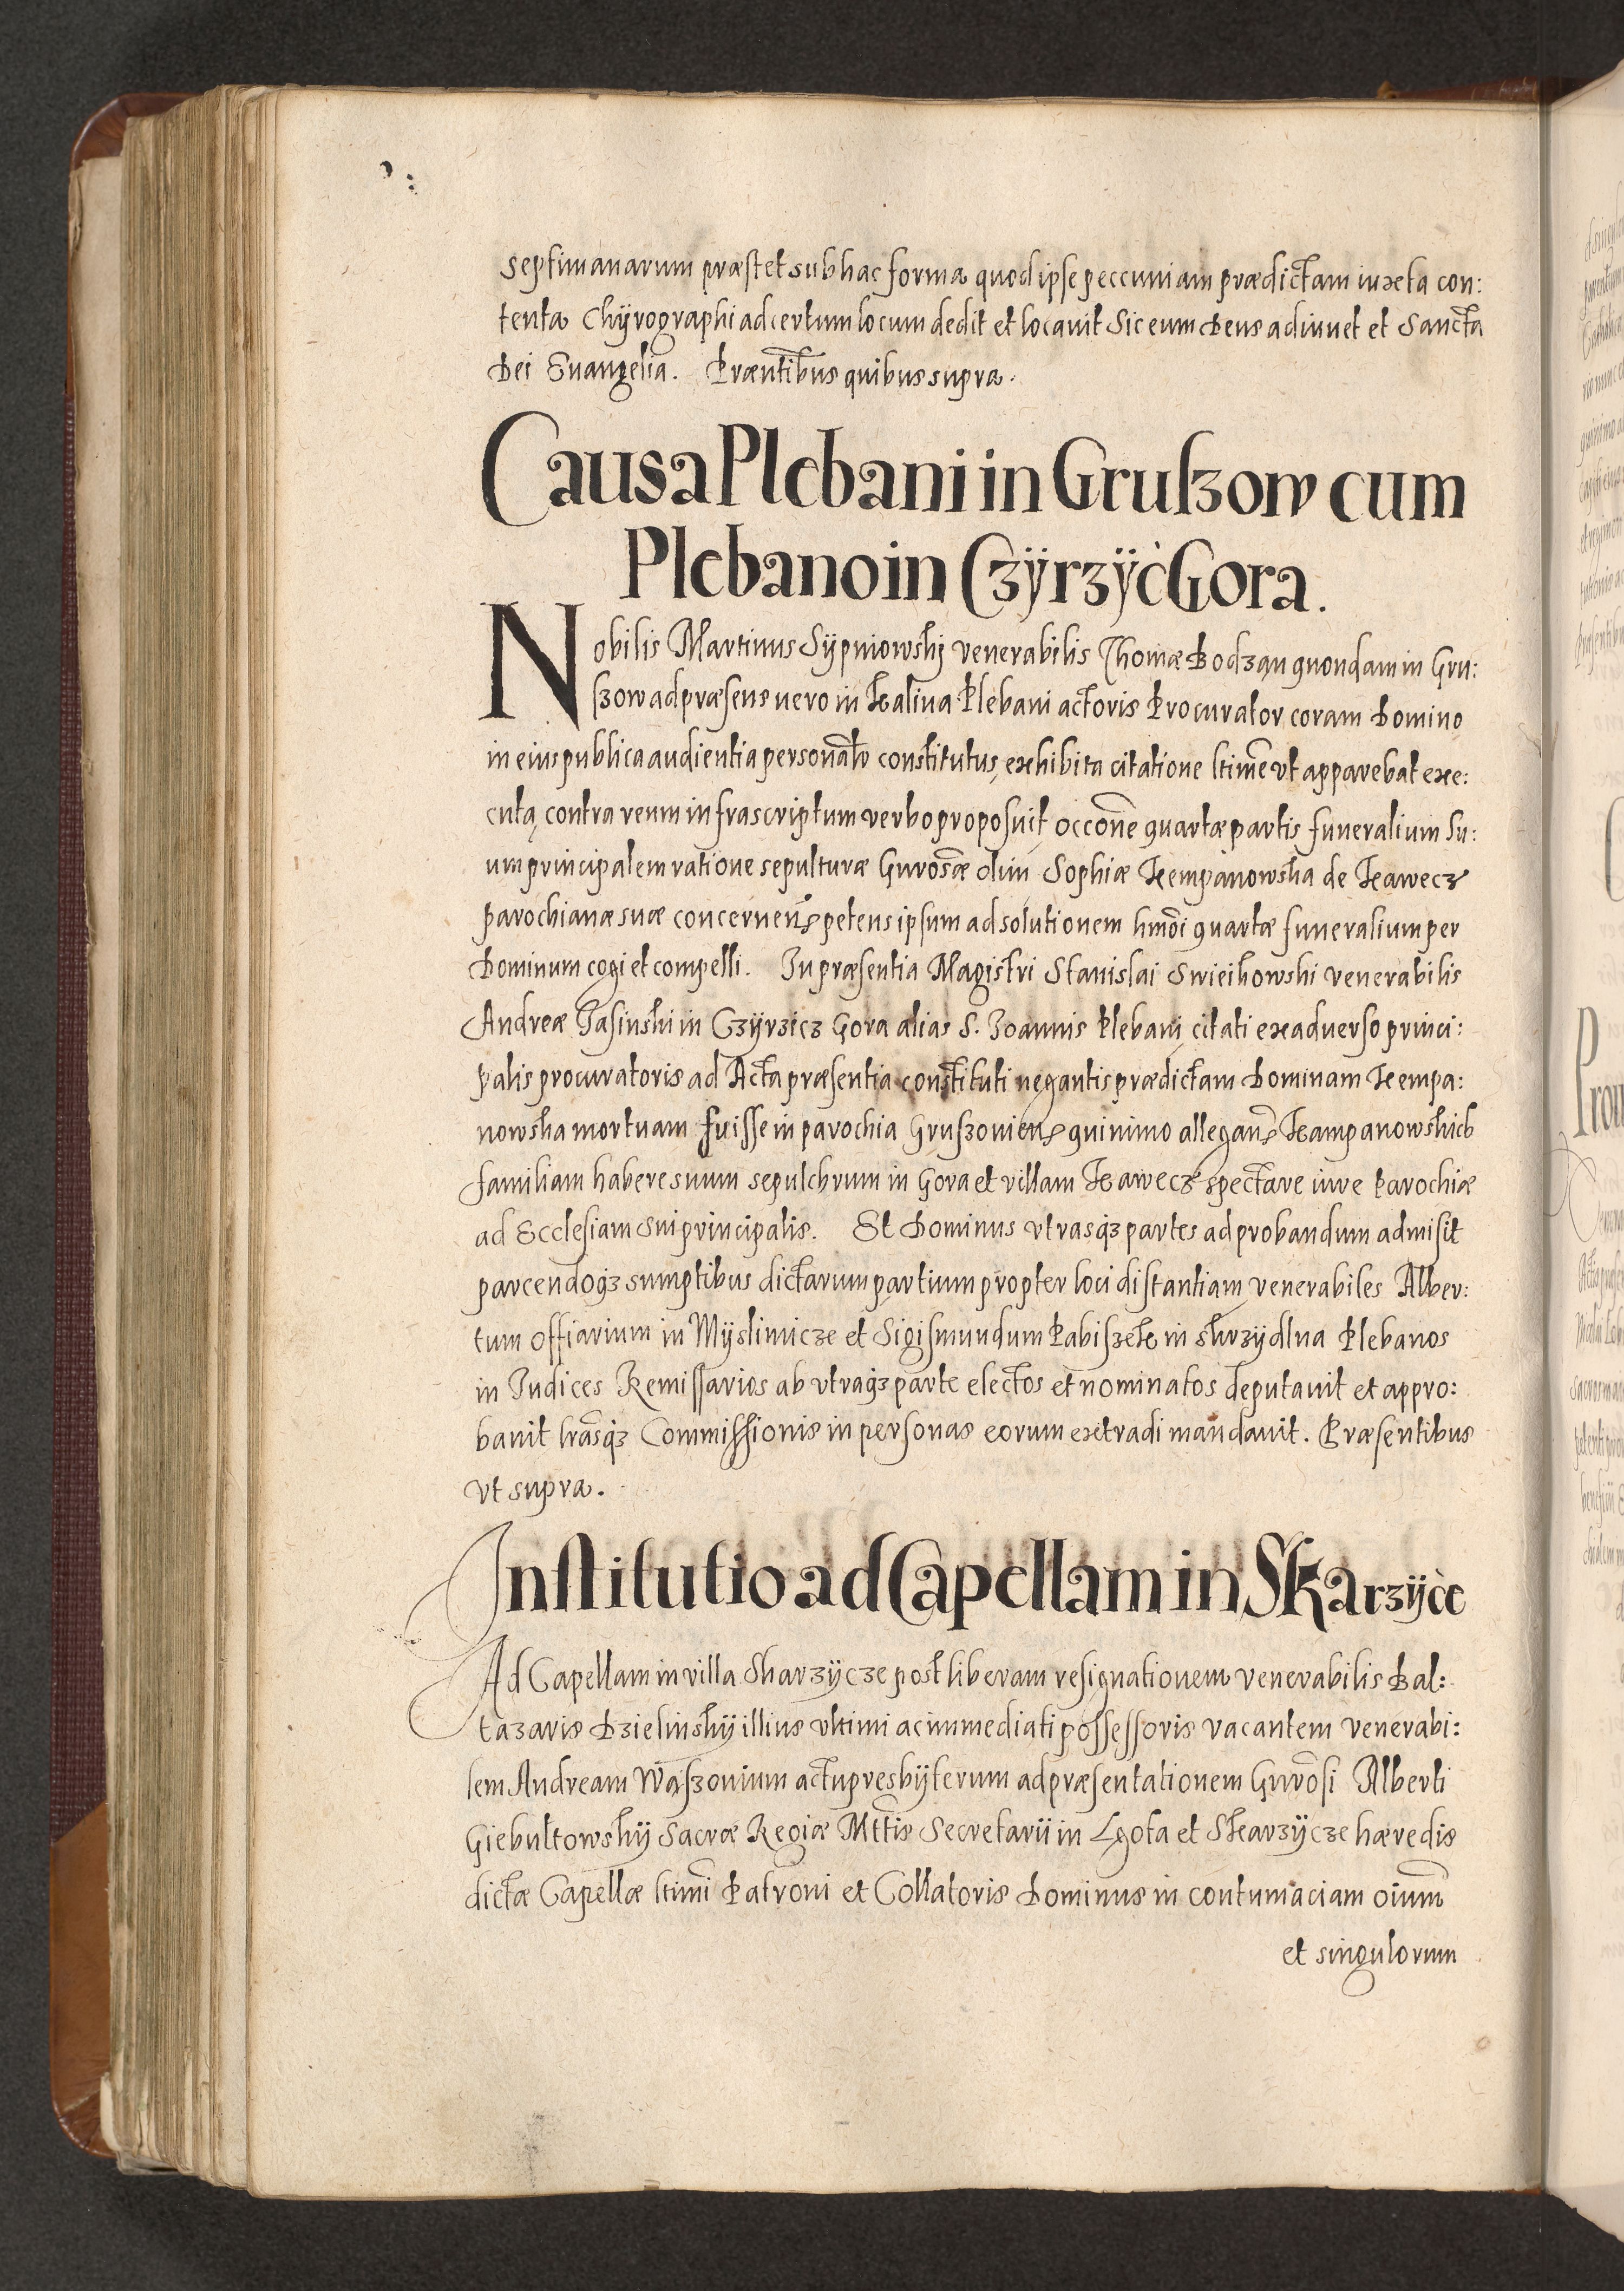 septimanarum præstet sub hac forma quod ipse peccuniam prædictam iuxta con:
tenta Chyrographi ad certum locum dedit et locauit Sic eum Deus adiuuet et Sancta
Dei Euangelia. Præntibus quibus supra.
Causa Plebani in Grußzow cum
Plebano in Czÿrzÿc Gora.
Nobilis Martinus Sÿpniowskj venerabilis Thomæ Bodzan quondam in Gru:
szow ad præsens uero in Kalina Plebani actoris Procurator coram Domino
in eius publica audientia personalr constitutus, exhibita citatione ltime vt apparebat exe:
cuta, contra reum infrascriptum verbo proposuit occone quartæ partis funeralium su:
um principalem ratione sepulturæ Gnrosæ olim Sophiæ Kempanowska de Kawecz
parochianæ suæ concernen petens ipsum ad solutionem hmoi quartæ funeralium per
Dominum cogi et compelli. In præsentia Magistri Stanislai Swieikowski venerabilis
Andreæ Jasinski in Czÿrzicz Gora alias S. Joannis Plebani citati ex aduerso princi:
palis procuratoris ad Acta præsentia constituti negantis prædictam Dominam Kempa:
nowska mortuam fuisse in parochia Gruszouien quinimo allegan Kampanowskich
familiam habere suum sepulchrum in Gora et villam Kawecz spectare iure Parochiæ
ad Ecclesiam sui principalis. Et Dominus vtrasqz partes ad probandum admisit
parcendoqz sumptibus dictarum partium propter loci distantiam venerabiles Alber:
tum offiarium in Mÿslimicze et Sigismundum Pabiszek in skrzÿdlna Plebanos
in Iudices Remissarios ab vtraqz parte electos et nominatos deputauit et appro:
bauit lrasqz Commissionis in personas eorum extradi mandauit. Præsentibus
vt supra.
Institutio ad Capellam in Skarzÿce
Ad Capellam in villa Skarzÿcze post liberam resignationem venerabilis Bal:
tazaris Dzielinskÿ illius vltimi ac immediati possessoris vacantem venerabi:
lem Andream Waszonium actu presbÿterum ad præsentationem Gnrosi Alberti
Giebultowskÿ Sacræ Regiæ Mttis Secretarii in Lgota et Skarzÿcze hæredis
dictæ Capellæ ltimi Patroni et Collatoris Dominus in contumaciam oium
et singulorum